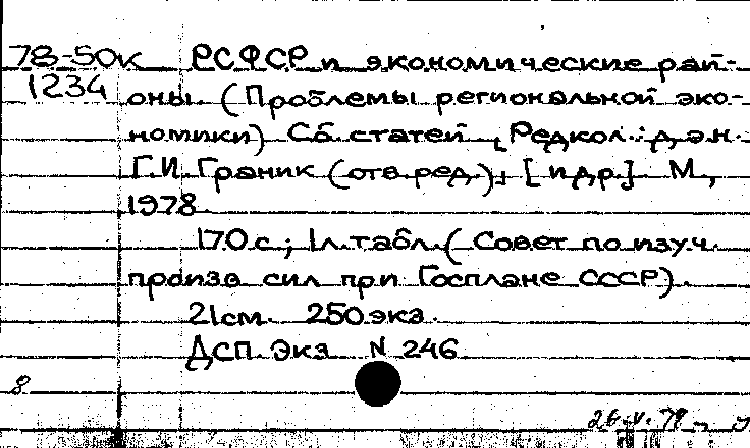 78-50к РСФСР и экономические рай-
1234 оны. (Проблемы региональной эко-
номики) Сб. статей [Редкол.: д.э.н.
Г.И. Граник (отв. ред.), [и др.]. М.,
1978.
170 с; 1 л. табл. (Совет по изуч.
произв. сил при Госплане СССР).
21 см. 250 экз.
ДСП. Экз. N 246
8
26.V.79